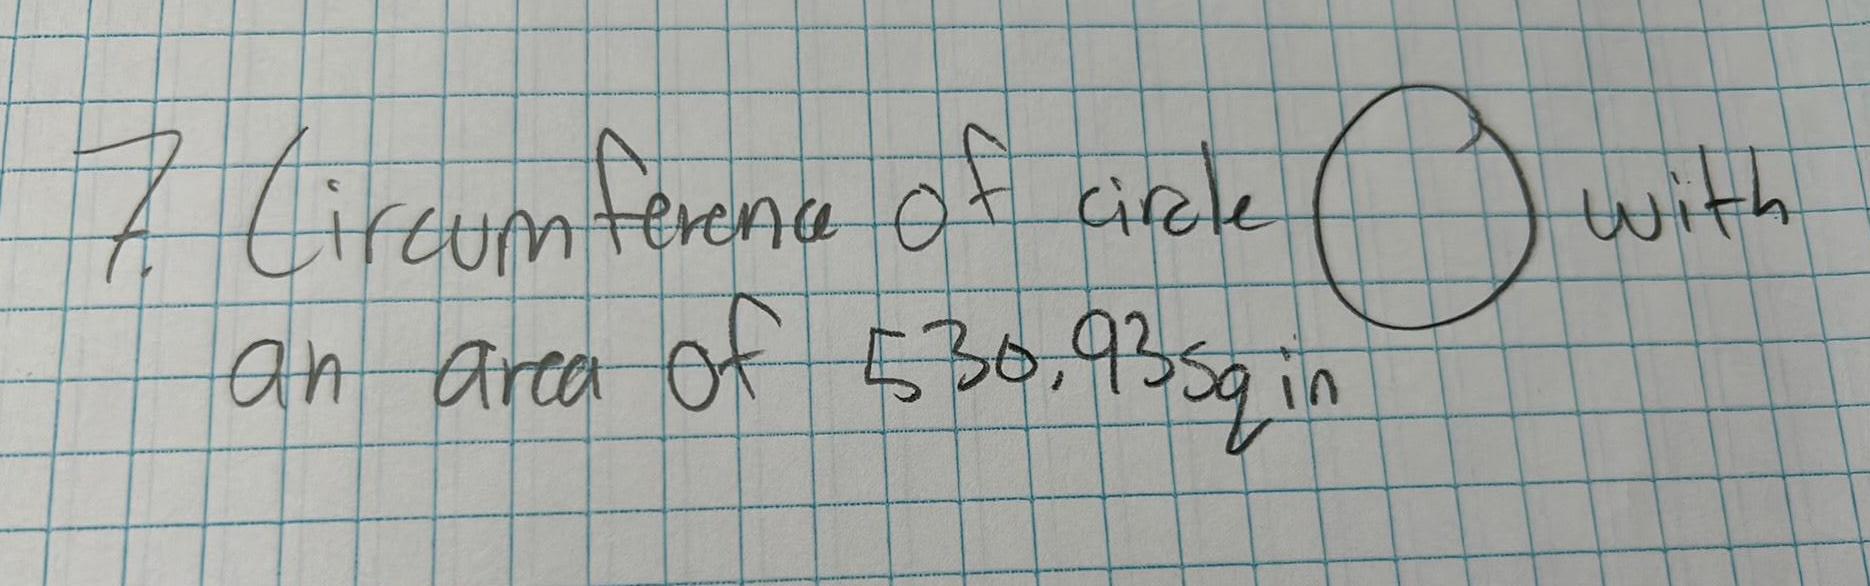 7. Circumference of circle with
an area of 530.93 sq in